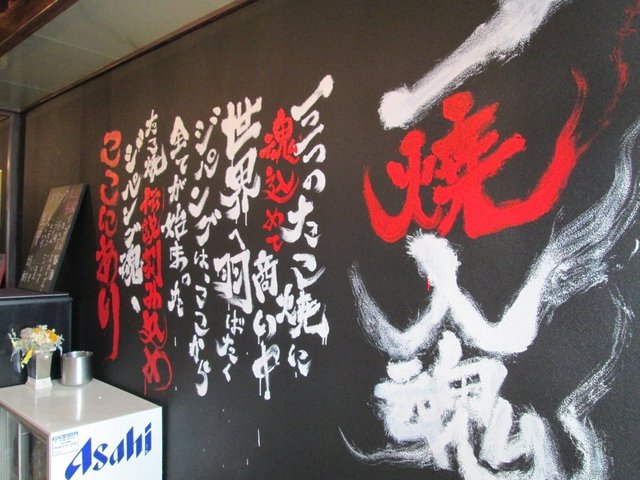 一焼入魂
一つ一つのたこ焼に
魂込めて商いや
世界へ羽ばたく
ジパングは、ここから
全てが始まった
たこ焼伝説刻み込め
ジパング魂、
ここにあり
Asahi